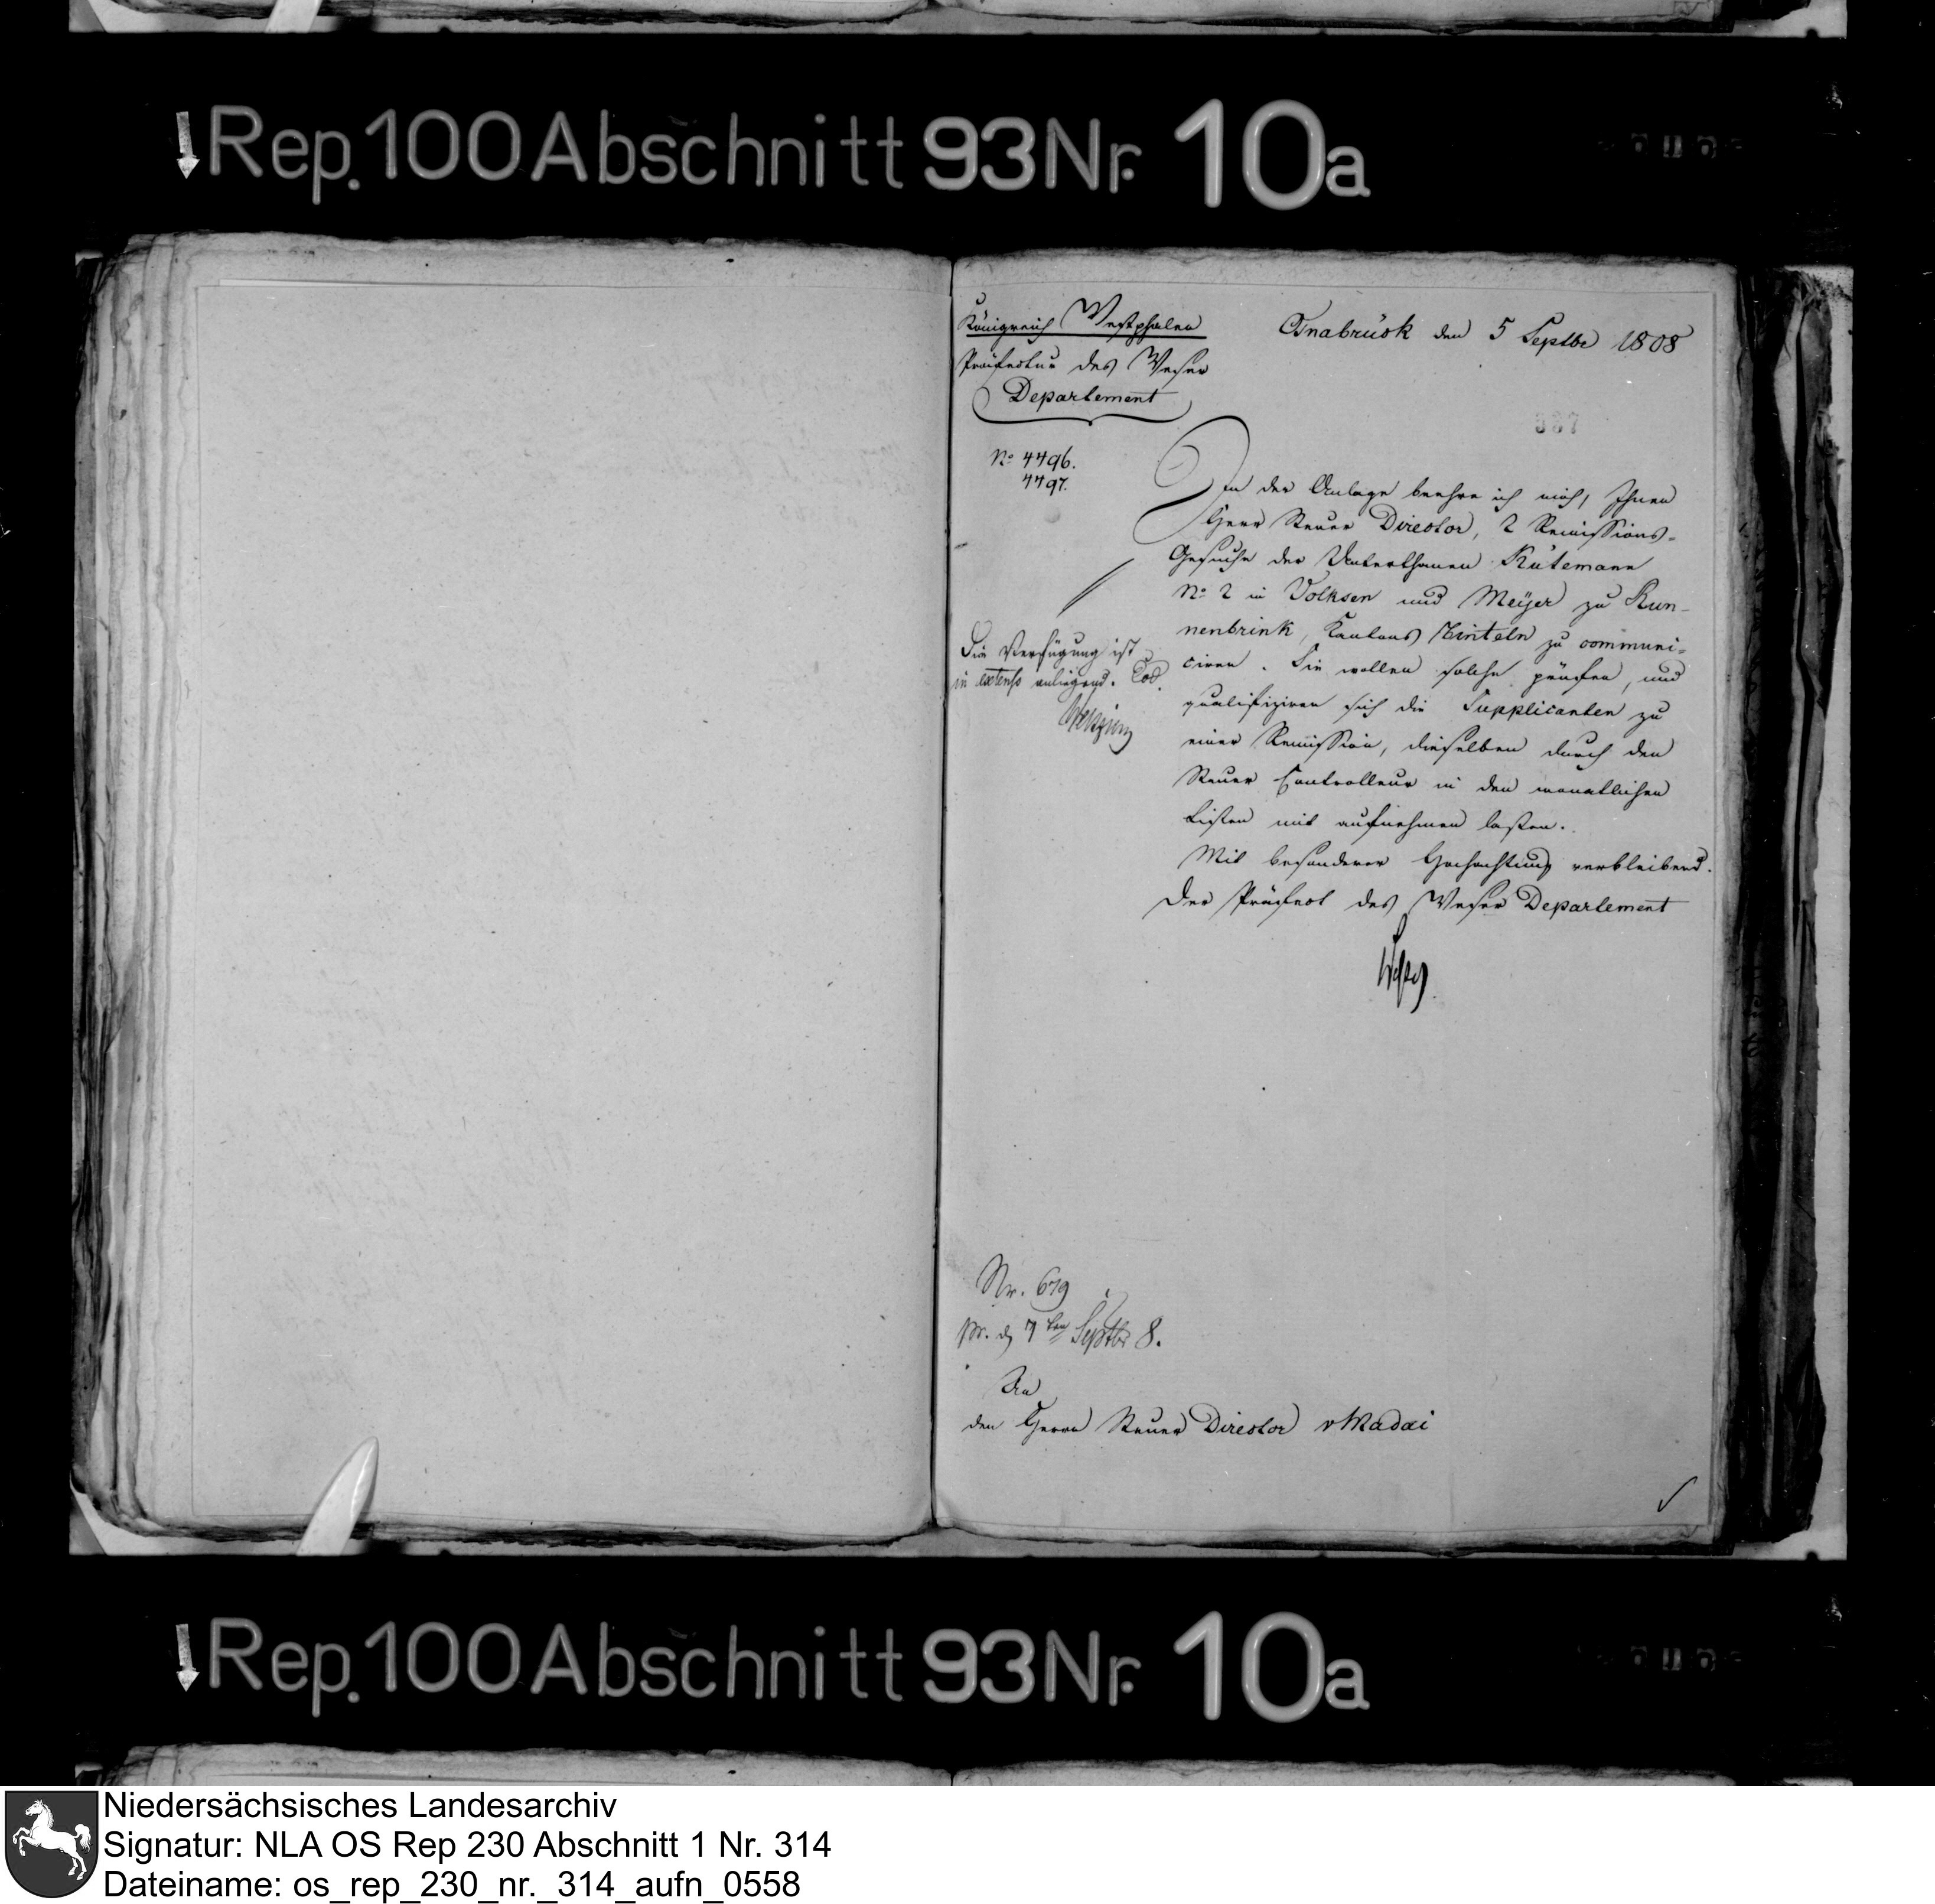 Rep. 100 Abschnitt 93 Nr. 10a
Königreich Westphalen
Präfectur des Weser
Departement
Osnabrück den 5 Septbr 1808
337
No 4496.
4497.
In der Anlage beehre ich mich, Ihnen
Herr Steuer Director, 2 Remissions-
Gesuche der Unterthanen Kütemann
No 2 in Volksen und Meijer zu Run-
nenbrink, Kantons Rinteln zu communi-
ciren. Sie wollen solche prüfen, und
qualifiziren sich die Supplicanten zu
einer Remission, dieselben durch den
Steuer Controlleur in den monatlichen
Listen mit aufnehmen lassen.
Mit besonderer Hochachtung verbleibend.
Der Präfect des Weser Departement
Die Verfügung ist
in extenso anliegend. Eod.
Nr. 679
pr. d 7ten Septbr 8.
An
den Herrn Steuer Director v Madai
Rep. 100 Abschnitt 93 Nr. 10a
Niedersächsisches Landesarchiv
Signatur: NLA OS Rep 230 Abschnitt 1 Nr. 314
Dateiname: os_rep_230_nr._314_aufn_0558